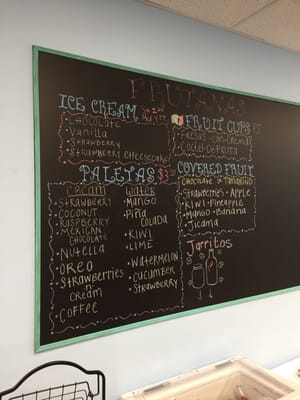 FRUTANAS
ICE CREAM
• Chocolate
• Vanilla
• Strawberry
• Strawberry Cheesecake
FRUIT CUPS
• Fresas-con-Crema
• Coctel de Fruta
PALETAS $3
CREAM
• STRAWBERRY
• COCONUT
• RASPBERRY
• MEXICAN
CHOCOLATE
• NUTELLA
• OREO
• STRAWBERRIES
n-
CREAM
• COFFEE
WATER
• MANGO
• Piña
COLADA
• KIWI
• LIME
• WATERMELON
• CUCUMBER
• STRAWBERRY
COVERED FRUIT
CHOCOLATE • TAMARIND
• Strawberries • Apple
• Kiwi • Pineapple
• Mango • Banana
• Jicama
Jarritos